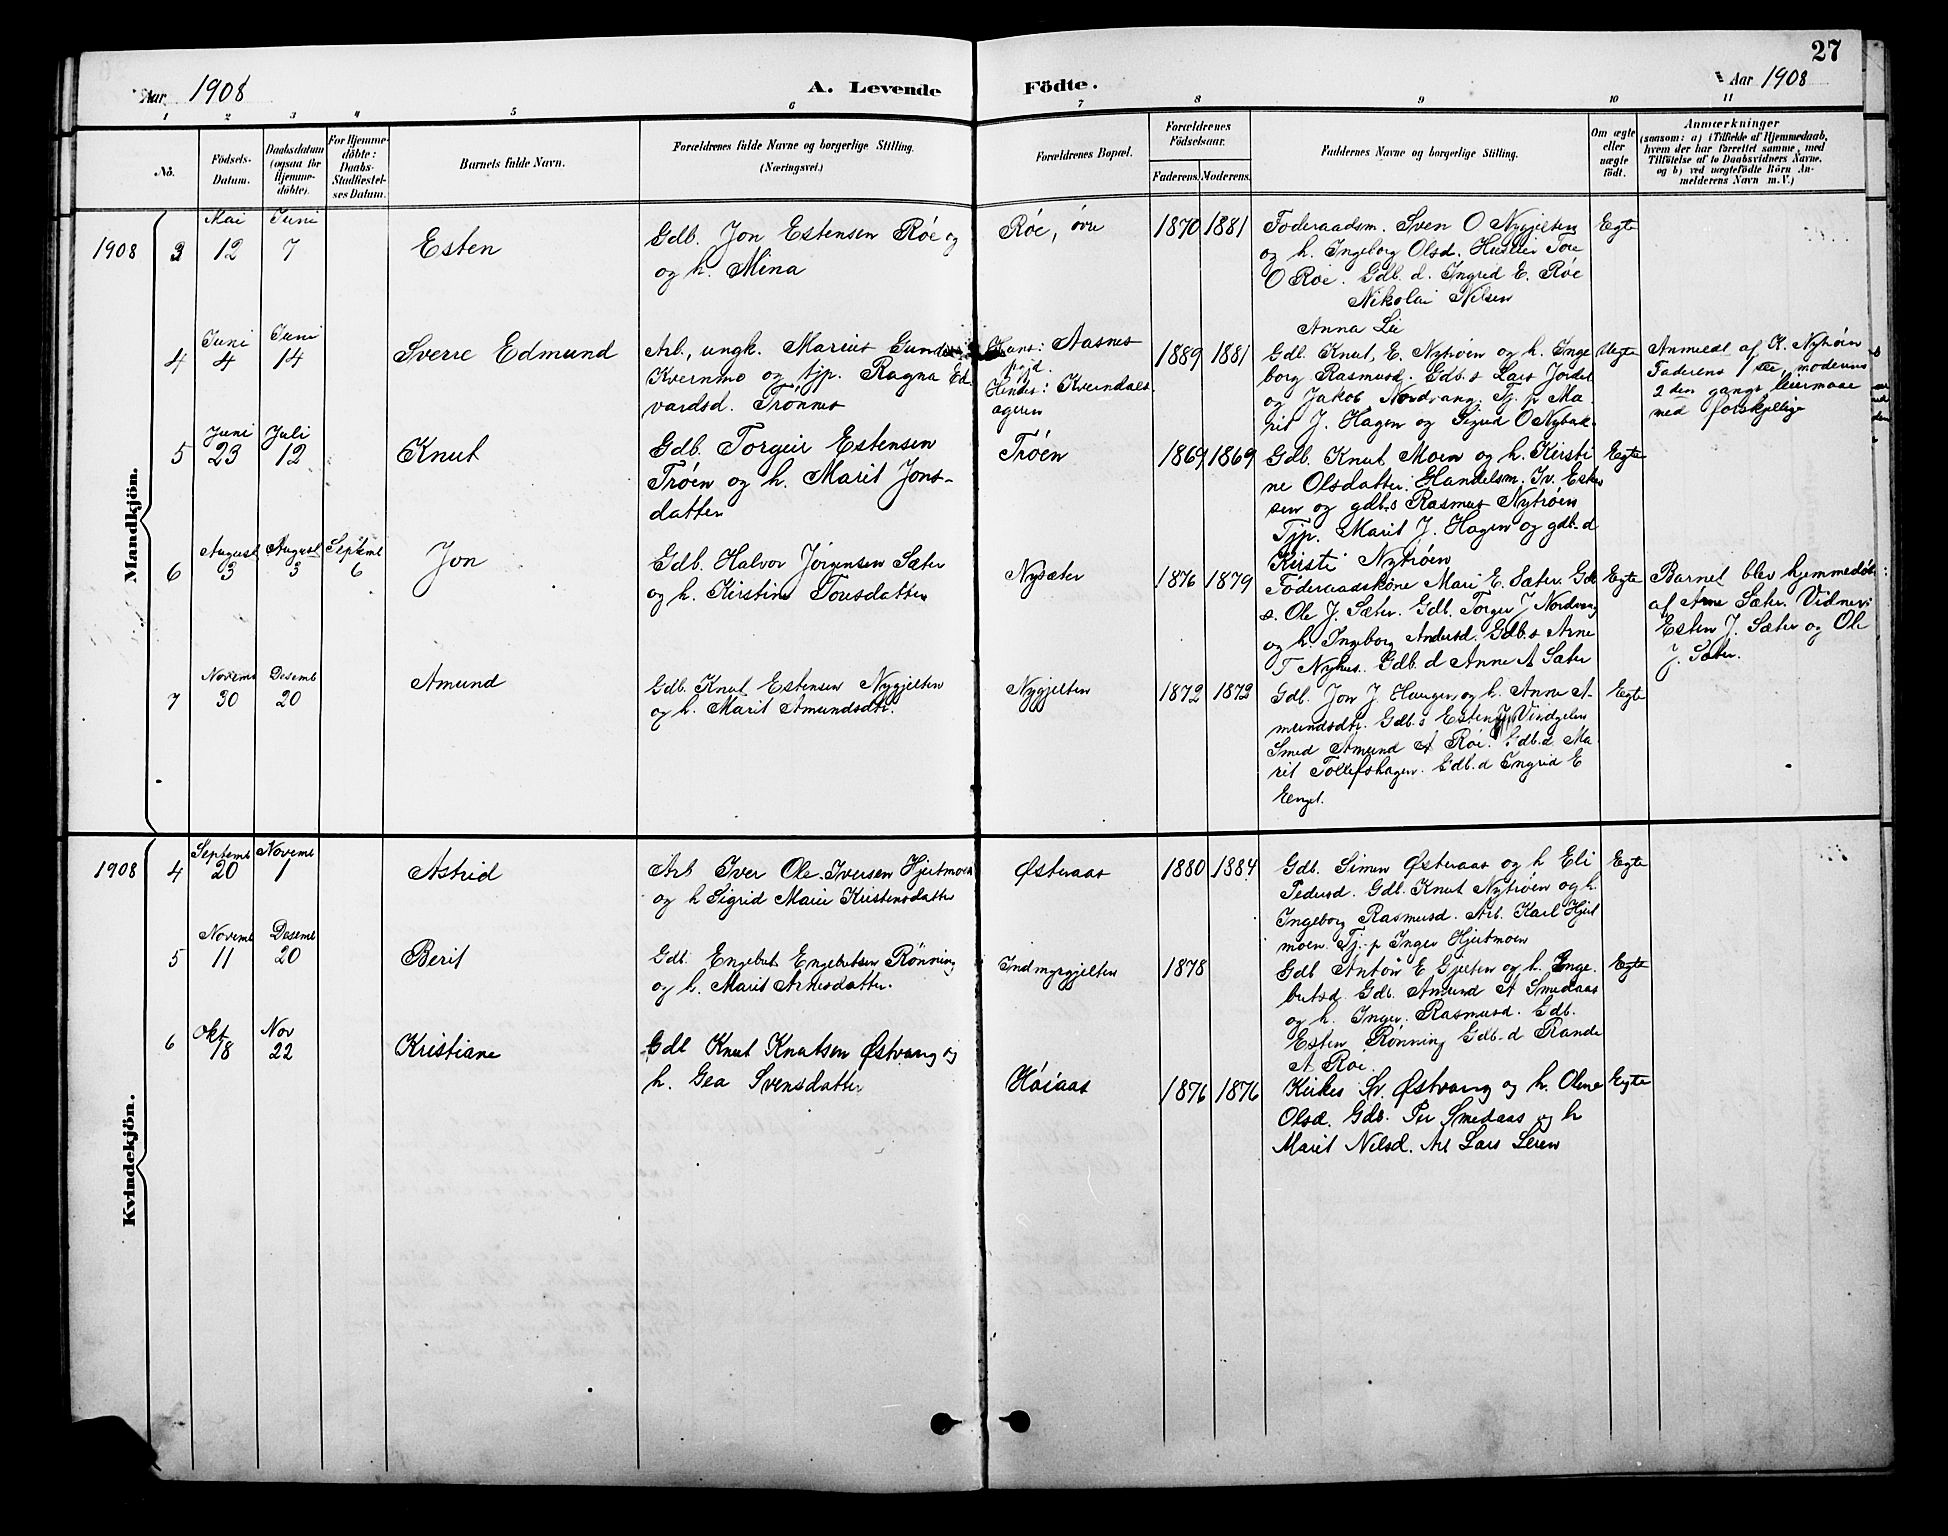 27
Aar 1908
A. Levende
Födte.
Aar 1908
1 2 3 4 5 6 7 8 9 10 11
No.
Födsels-Datum.
Daabsdatum (ogsaa for Hjemme-döbte).
For Hjemme-döbte: Daabs-Stadfæstel-ses Datum.
Barnets fulde Navn.
Forældrenes fulde Navne og borgerlige Stilling.
(Næringsvei.)
Forældrenes Bopæl.
Forældrenes Födselsaar.
Faderens. Moderens.
Faddernes Navne og borgerlige Stilling.
Om ægte eller uægte födt.
Anmærkninger
(saasom: a) i Tilfælde af Hjemmedaab,
hvem der har forrettet samme, med
Tilföielse af to Daabsvidners Navne,
og b) ved uægtefödte Börn An-
melderens Navn m. V.)
Mandkjön.
1908 3
Mai 12
Juni 7
Esten
Gdb. Jon Estensen Röe og
og h. Mina
Röe, övre
1870 1881
Föderaadsm. Sven O Nygjelten
og h. Ingeborg Olsd. Tore
O Röe. Gdb. d. Ingrid E. Röe
Nikolai Nilsen
Anna Lie
Egte
4
Juni 4
Juni 14
Sverre Edmund
Arb., ungk. Marius
Kvernmo og tjp. Ragna Ed-
vardsd. Trönnes
Hans: Aasnes
pgjd.
Hendes: Kverndals
ageren
1889 1881
Gdb. Knut E. Nytröen og h. Inge
borg Rasmusd. Gdb. s Lars Jordet
og Jakob Nordvang. Tj. p Ma-
rit J. Hagen og Sigrid O Nybak-
Uegte
Anmeldt af K. Nytröen
Faderens 1ste, moderens
2 den gangs leiermaal
med forskjellige
5
Juni 23
Juli 12
Knut
Gdb. Torgeir Estensen
Tröen og h. Marit Jons-
datter
Tröen
1869 1869
Gdb. Knut Moen og h. Kirsti
ne Olsdatter. Handelsm. Iv. Esten
sen og gdb.s Rasmus Nytröen
Tjp. Marit J. Hagen og gdb. d
Kirsti Nytröen
Egte
6
August 3
August 3
Septemb 6
Jon
Gdb. Halvor Jörgensen Sæter
og h. Kirstine Toresdatter
Nysæter
1876 1879
Föderaadskone Mari E. Sæter. Gdb
s. Ole J. Sæter. Gdb. Torger J Nordvang
og h. Ingeborg Andersd. Gdb. s Arne
T Nyhus. Gdb. d Anne A Sæter
Egte
Barnet blev hjemmedöbt
af Arne Sæter. Vidner:
Esten J. Sæter og Ole
J. Sæter.
7
Novemb 30
Desemb 20
Amund
Gdb. Knut Estensen Nygjelten
og h. Marit Amundsdtr.
Nygjelten
1872 1872
Gdb. Jon J. Haugen og h. Anne A-
mundsdtr. Gdb. s Esten J. Vindgelen
Smed Amund A Röe. Gdb. d Ma-
rit Tollefshagen. Gdb. d Ingrid E
Enget.
Egte
Kvindekjön.
1908 4
Septemb 20
Novemb 1
Astrid
Arb Iver Ole Iversen Hjertmoen
og h Sigrid Marie Kristensdatter
Österaas
1880 1884
Gdb. Simen Österaas og h Eli
Pedersd. Gdb. Knut Nytröen og h.
Ingeborg Rasmusd. Arb. Karl Hjert
moen. Tj.-p Inger Hjertmoen
Egte
5
Novemb 11
Desemb 20
Berit
Gdb. Engebret Engebretsen Rönning
og h. Marit Arnesdatter.
Indmyrgjelten
1878
Gdb Anton E Gjelten og h. Inge-
bretsd. Gdb. Amund A Smedaas
og h. Inger Rasmusd. Gdb.
Esten Rönning Gdb. d Rande
A Röe.
Egte
6
Okt 18
Nov 22
Kristiane
Gdb Knut Knutsen Östvang og
h. Gea Svensdatter
Höiaas
1876 1876
Kirkes Sr. Östvang og h. Oline
Olsd. Gdb. Per Smedaas og h
Marit Nilsd. Arb Lars Leren
Egte